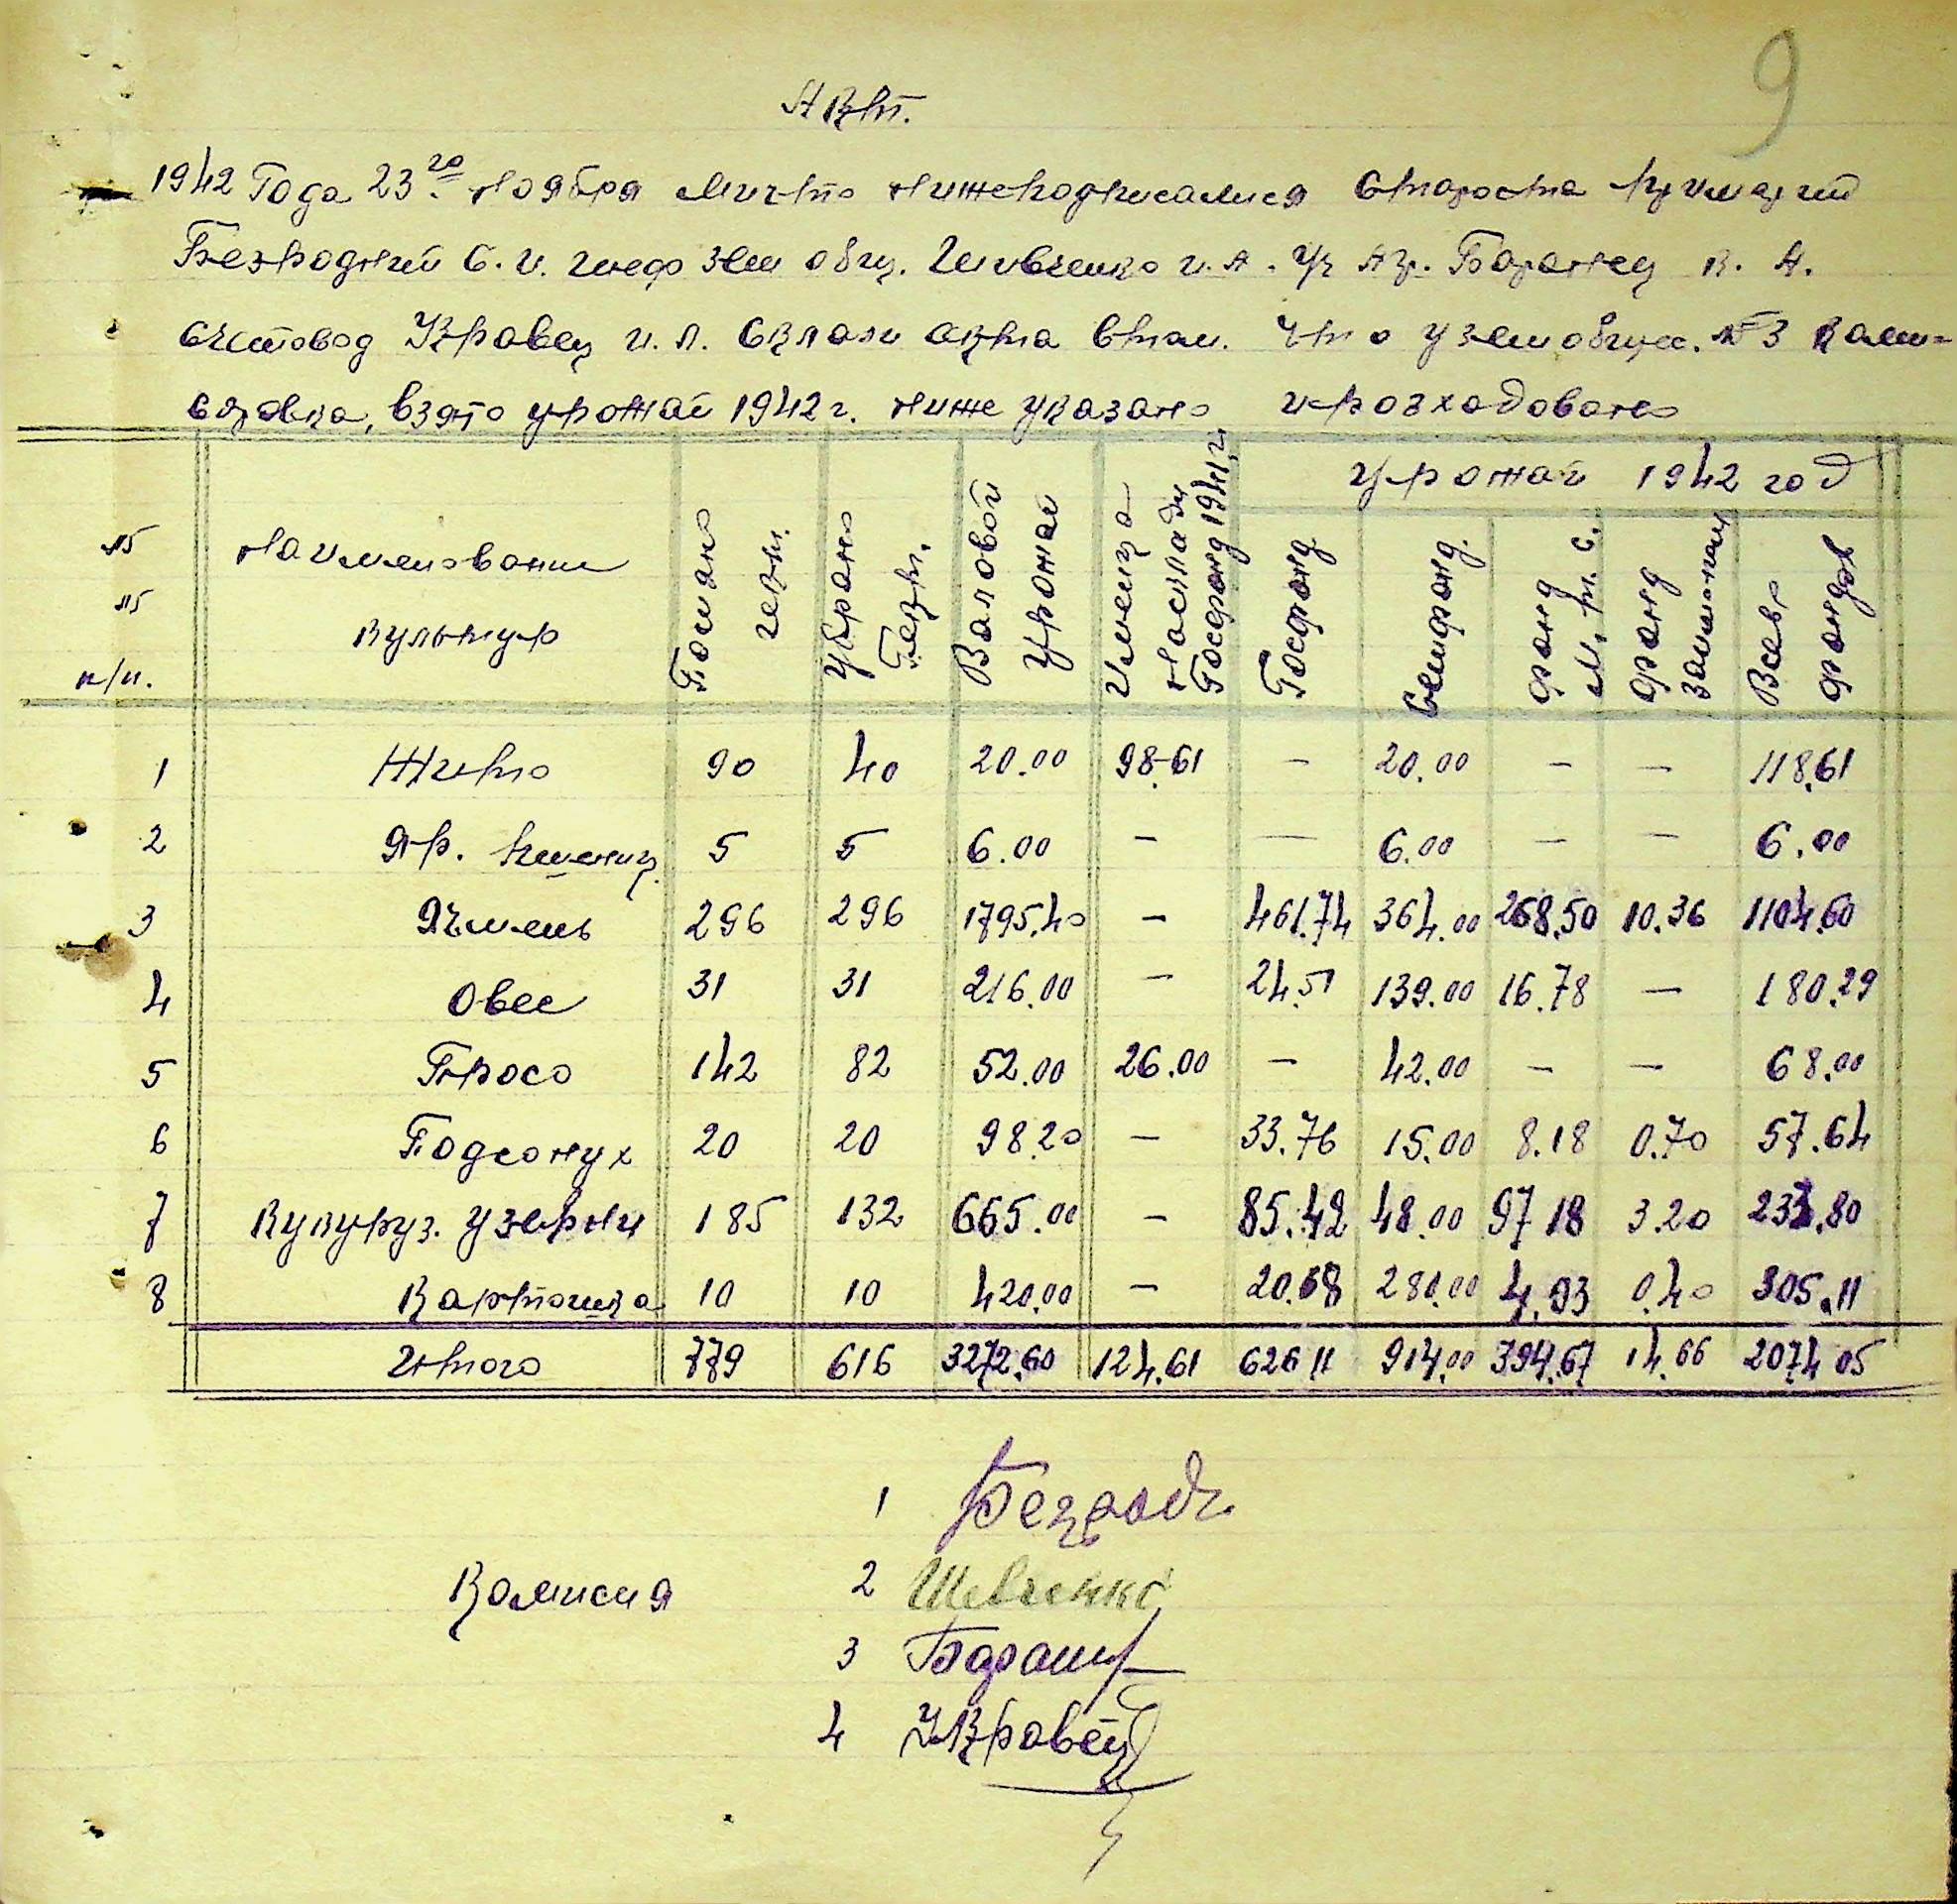 9
Акт.
1942 Года 23го Ноября Мичто нижеподписалися Староста примарии
Безродний С. И. шеф зем общ. Шивченко И. А. Баранец К. А.
счетовод Кравец И. Л. Склали акта втом. Что у земобщес. №3
взято урожай 1942 г. ниже указано израсходовано
№ № п/п. Наименовании культур Посияно гект. Убрано Гект. Валовой Урожай Имеица Наскладе Госфонд 1941 г. Урожай 1942 год
Госфонд Семфонд. фонд М. т. с. фонд Всево фондов
1 Жито 90 40 20.00 98.61 — 20.00 — — 118.61
2 Яр. пшениц. 5 5 6.00 — — 6.00 — — 6.00
3 Ячмень 296 296 1795.40 — 461.74 364.00 268.50 10.36 1104.60
4 Овес 31 31 216.00 — 24.51 139.00 16.78 — 180.29
5 Просо 142 82 52.00 26.00 — 42.00 — — 68.00
6 Подсонух 20 20 98.20 — 33.76 15.00 8.18 0.70 57.64
7 Кукуруз. узерни 185 132 665.00 — 85.42 48.00 97.18 3.20 233.80
8 Картошка 10 10 420.00 — 20.68 280.00 4.93 0.40 305.11
Итого 779 616 3272.60 124.61 626 11 914.00 394.67 14.66 2074 05
1 Безродн.
Комисия 2 Шевченко
3 Баранец
4 Кравец